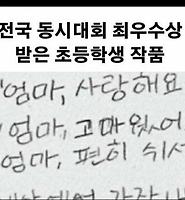 전국 동시대회 최우수상
받은 초등학생 작품
"엄마, 사랑해요
엄마, 고마웠어
엄마, 편히 쉬세